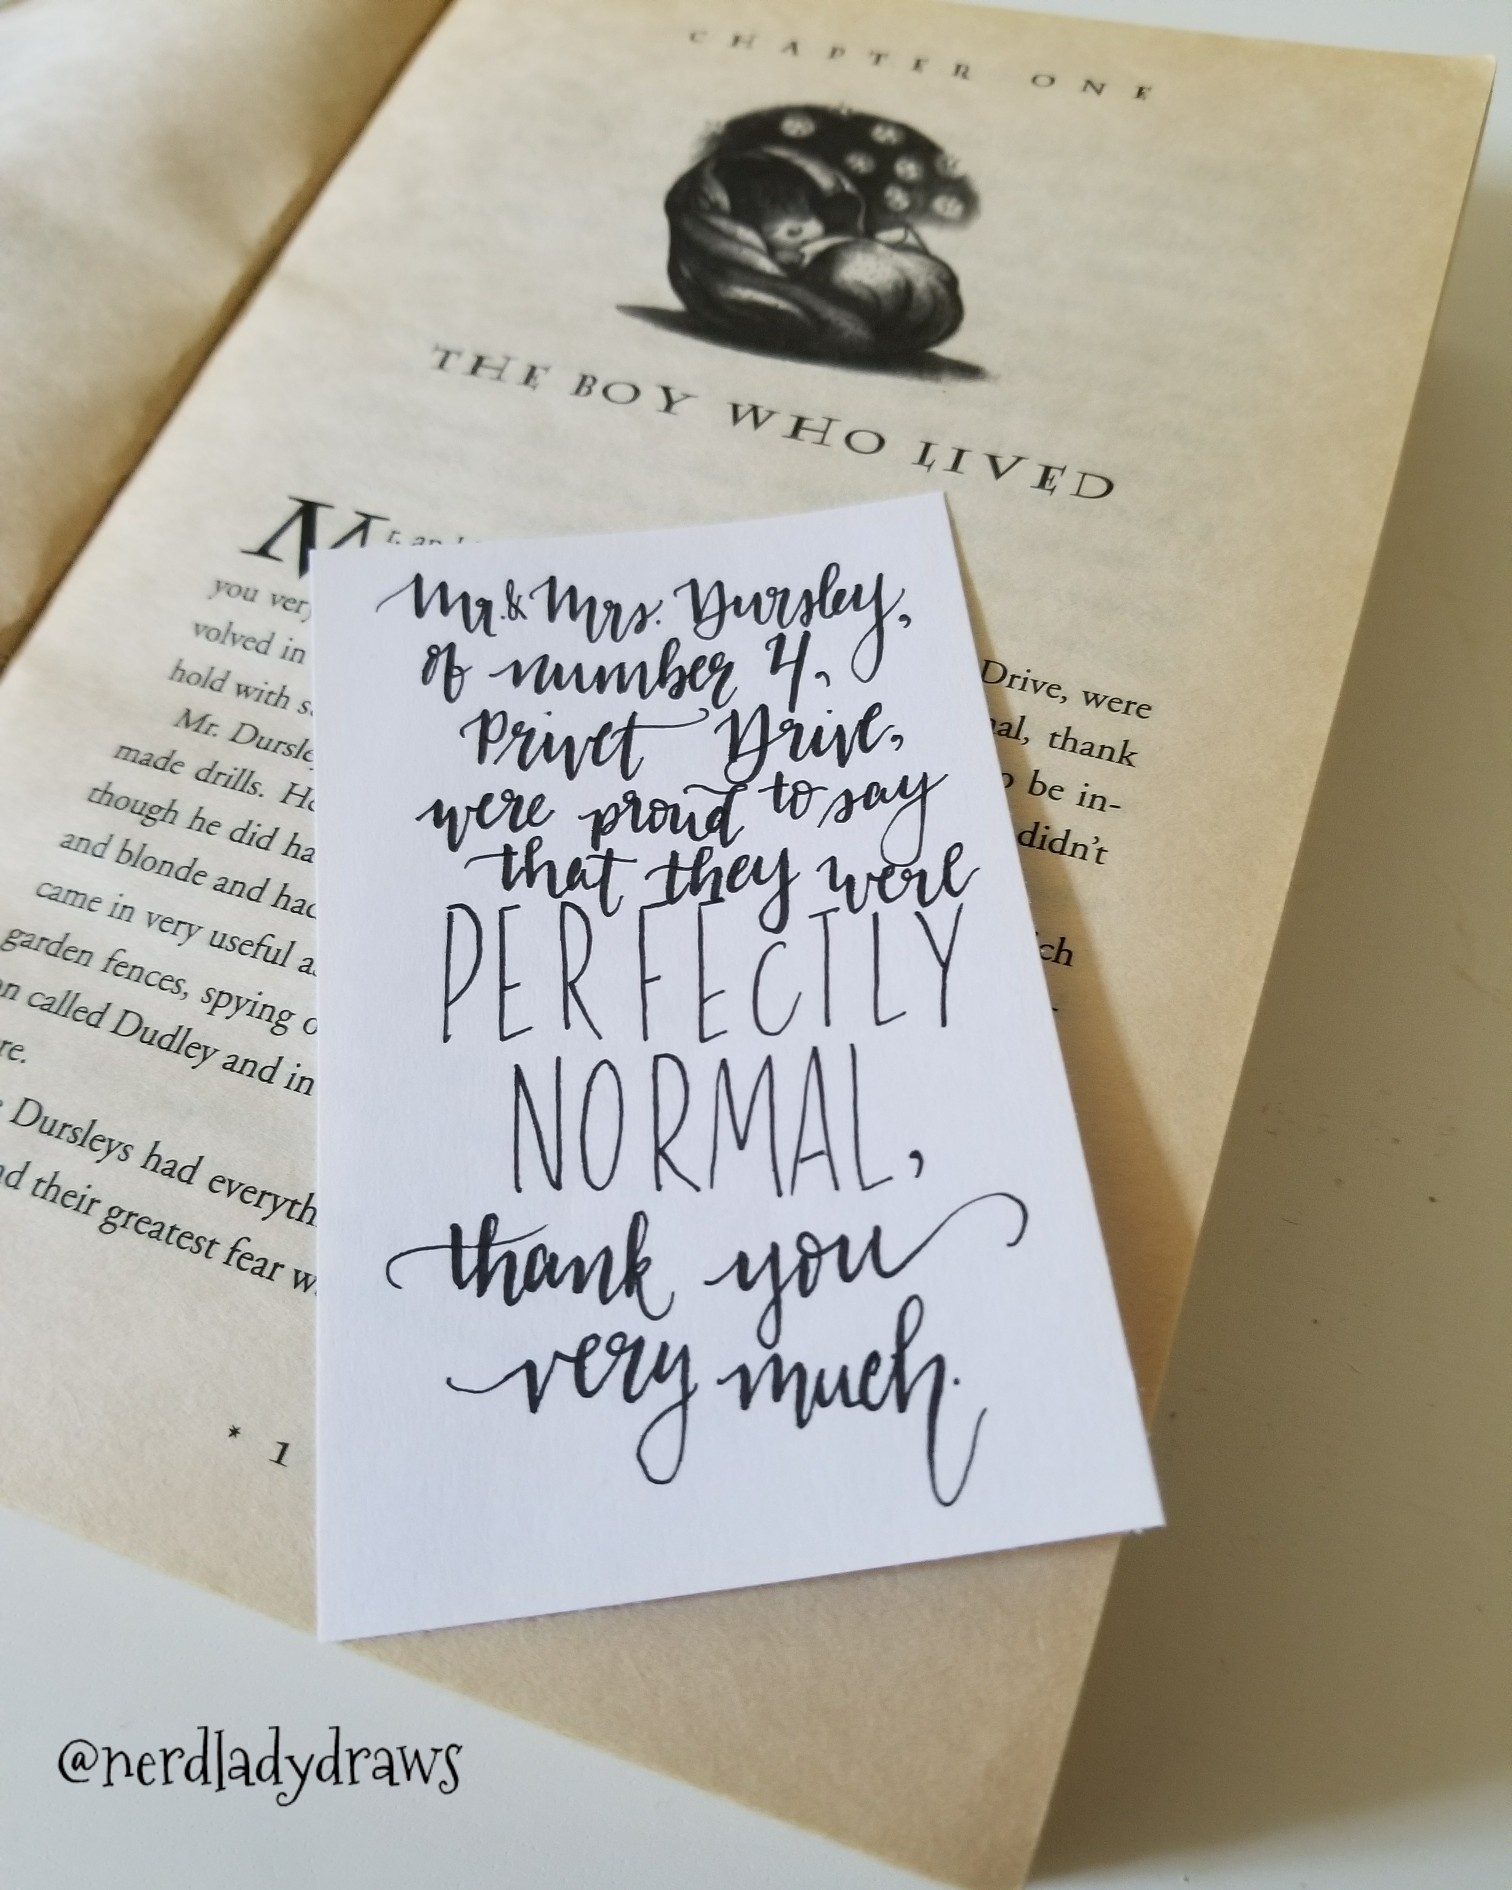 CHAPTER ONE
THE BOY WHO LIVED
Mr. and
you very
volved in
hold with s
Mr. Dursle
made drills. He
though he did ha
and blonde and had
came in very useful as
garden fences, spying o
on called Dudley and in
re.
Dursleys had everyth
nd their greatest fear w
Drive, were
al, thank
be in-
didn't
ich
* 1
Mr. & Mrs. Dursley,
of number 4,
Privet Drive,
were proud to say
that they were
PERFECTLY
NORMAL,
thank you
very much.
@nerdladydraws